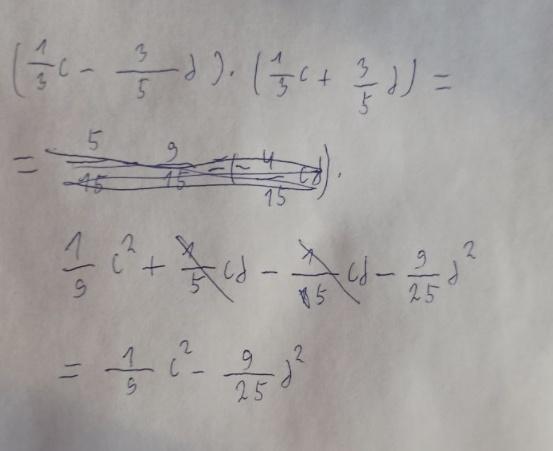 (1/3 c - 3/5 d) · (1/3 c + 3/5 d) =
= 5/15 9/15 = (- 4/15 cd) ·
1/9 c² + 1/5 cd - 1/5 cd - 9/25 d²
= 1/9 c² - 9/25 d²